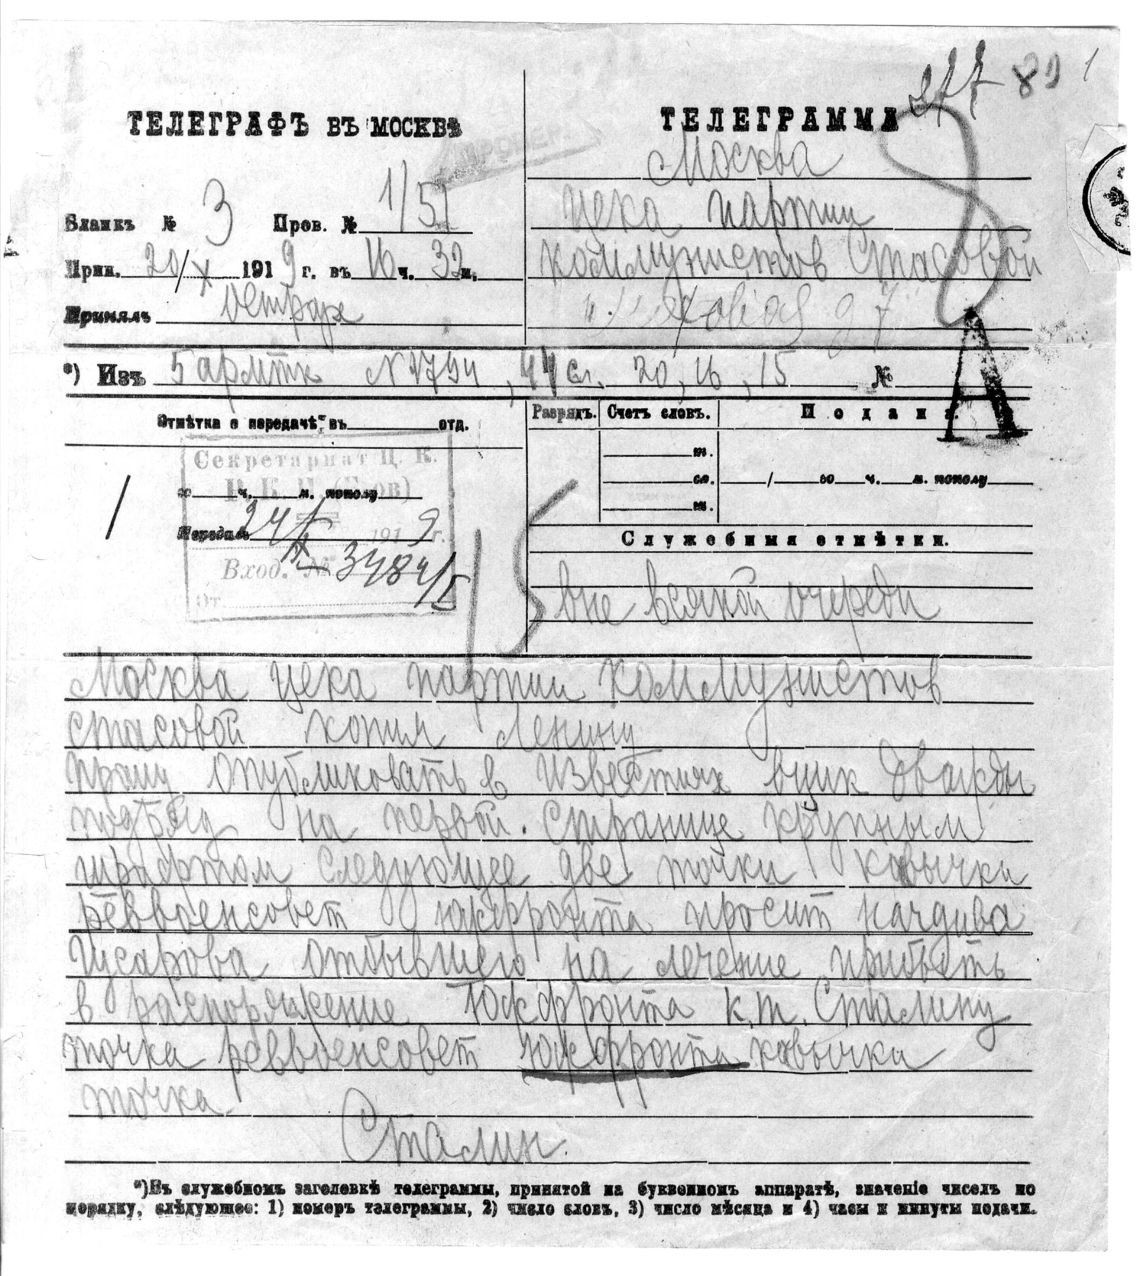 277 82 1
ТЕЛЕГРАФЪ ВЪ МОСКВѢ
ТЕЛЕГРАММА
Москва
Бланкъ № 3 Пров. № 1/51
цека партии
Прин. 20/X 1919 г. въ 16 ч. 32 м.
коммунистов Стасовой
Принялъ
*) Изъ 5 армтк N 1794, 44 сл. 20, 16, 15 №
А
Отмѣтка о передачѣ: въ отд.
Разрядъ. Счетъ словъ. Подана
Секретариат Ц. К.
Р. К. П. (б-ов)
ч. м. пополу
т.
сл.
т.
/ го ч. м. пополу
Передалъ
24/X 1919 г.
Вход. № 3484/I
От
Служебныя отмѣтки.
вне всякой очереди
15
Москва цека партии коммунистов
стасовой копия Ленину
прошу опубликовать в известиях вцик дважды
подряд на первой странице крупным
шрифтом следующее две точки кавычки
реввоенсовет южфронта просит начдива
Гусарова отбывшего на лечение прибыть
в распоряжение Южфронта к т. Сталину
точка реввоенсовет южфронта кавычки
точка
Сталин.
*) Въ служебномъ заголовкѣ телеграммы, принятой на буквенномъ аппаратѣ, значеніе чиселъ по
порядку, слѣдующее: 1) номеръ телеграммы, 2) число словъ, 3) число мѣсяца и 4) часы и минуты подачи.